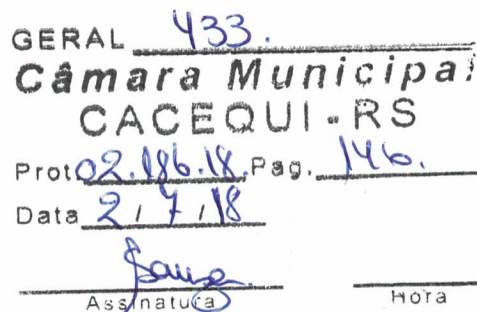 GERAL 433.
Câmara Municipal
CACEQUI-RS
Prot. 02.186.18. Pag. 146.
Data 2 / 7 / 18
Assinatura Hora